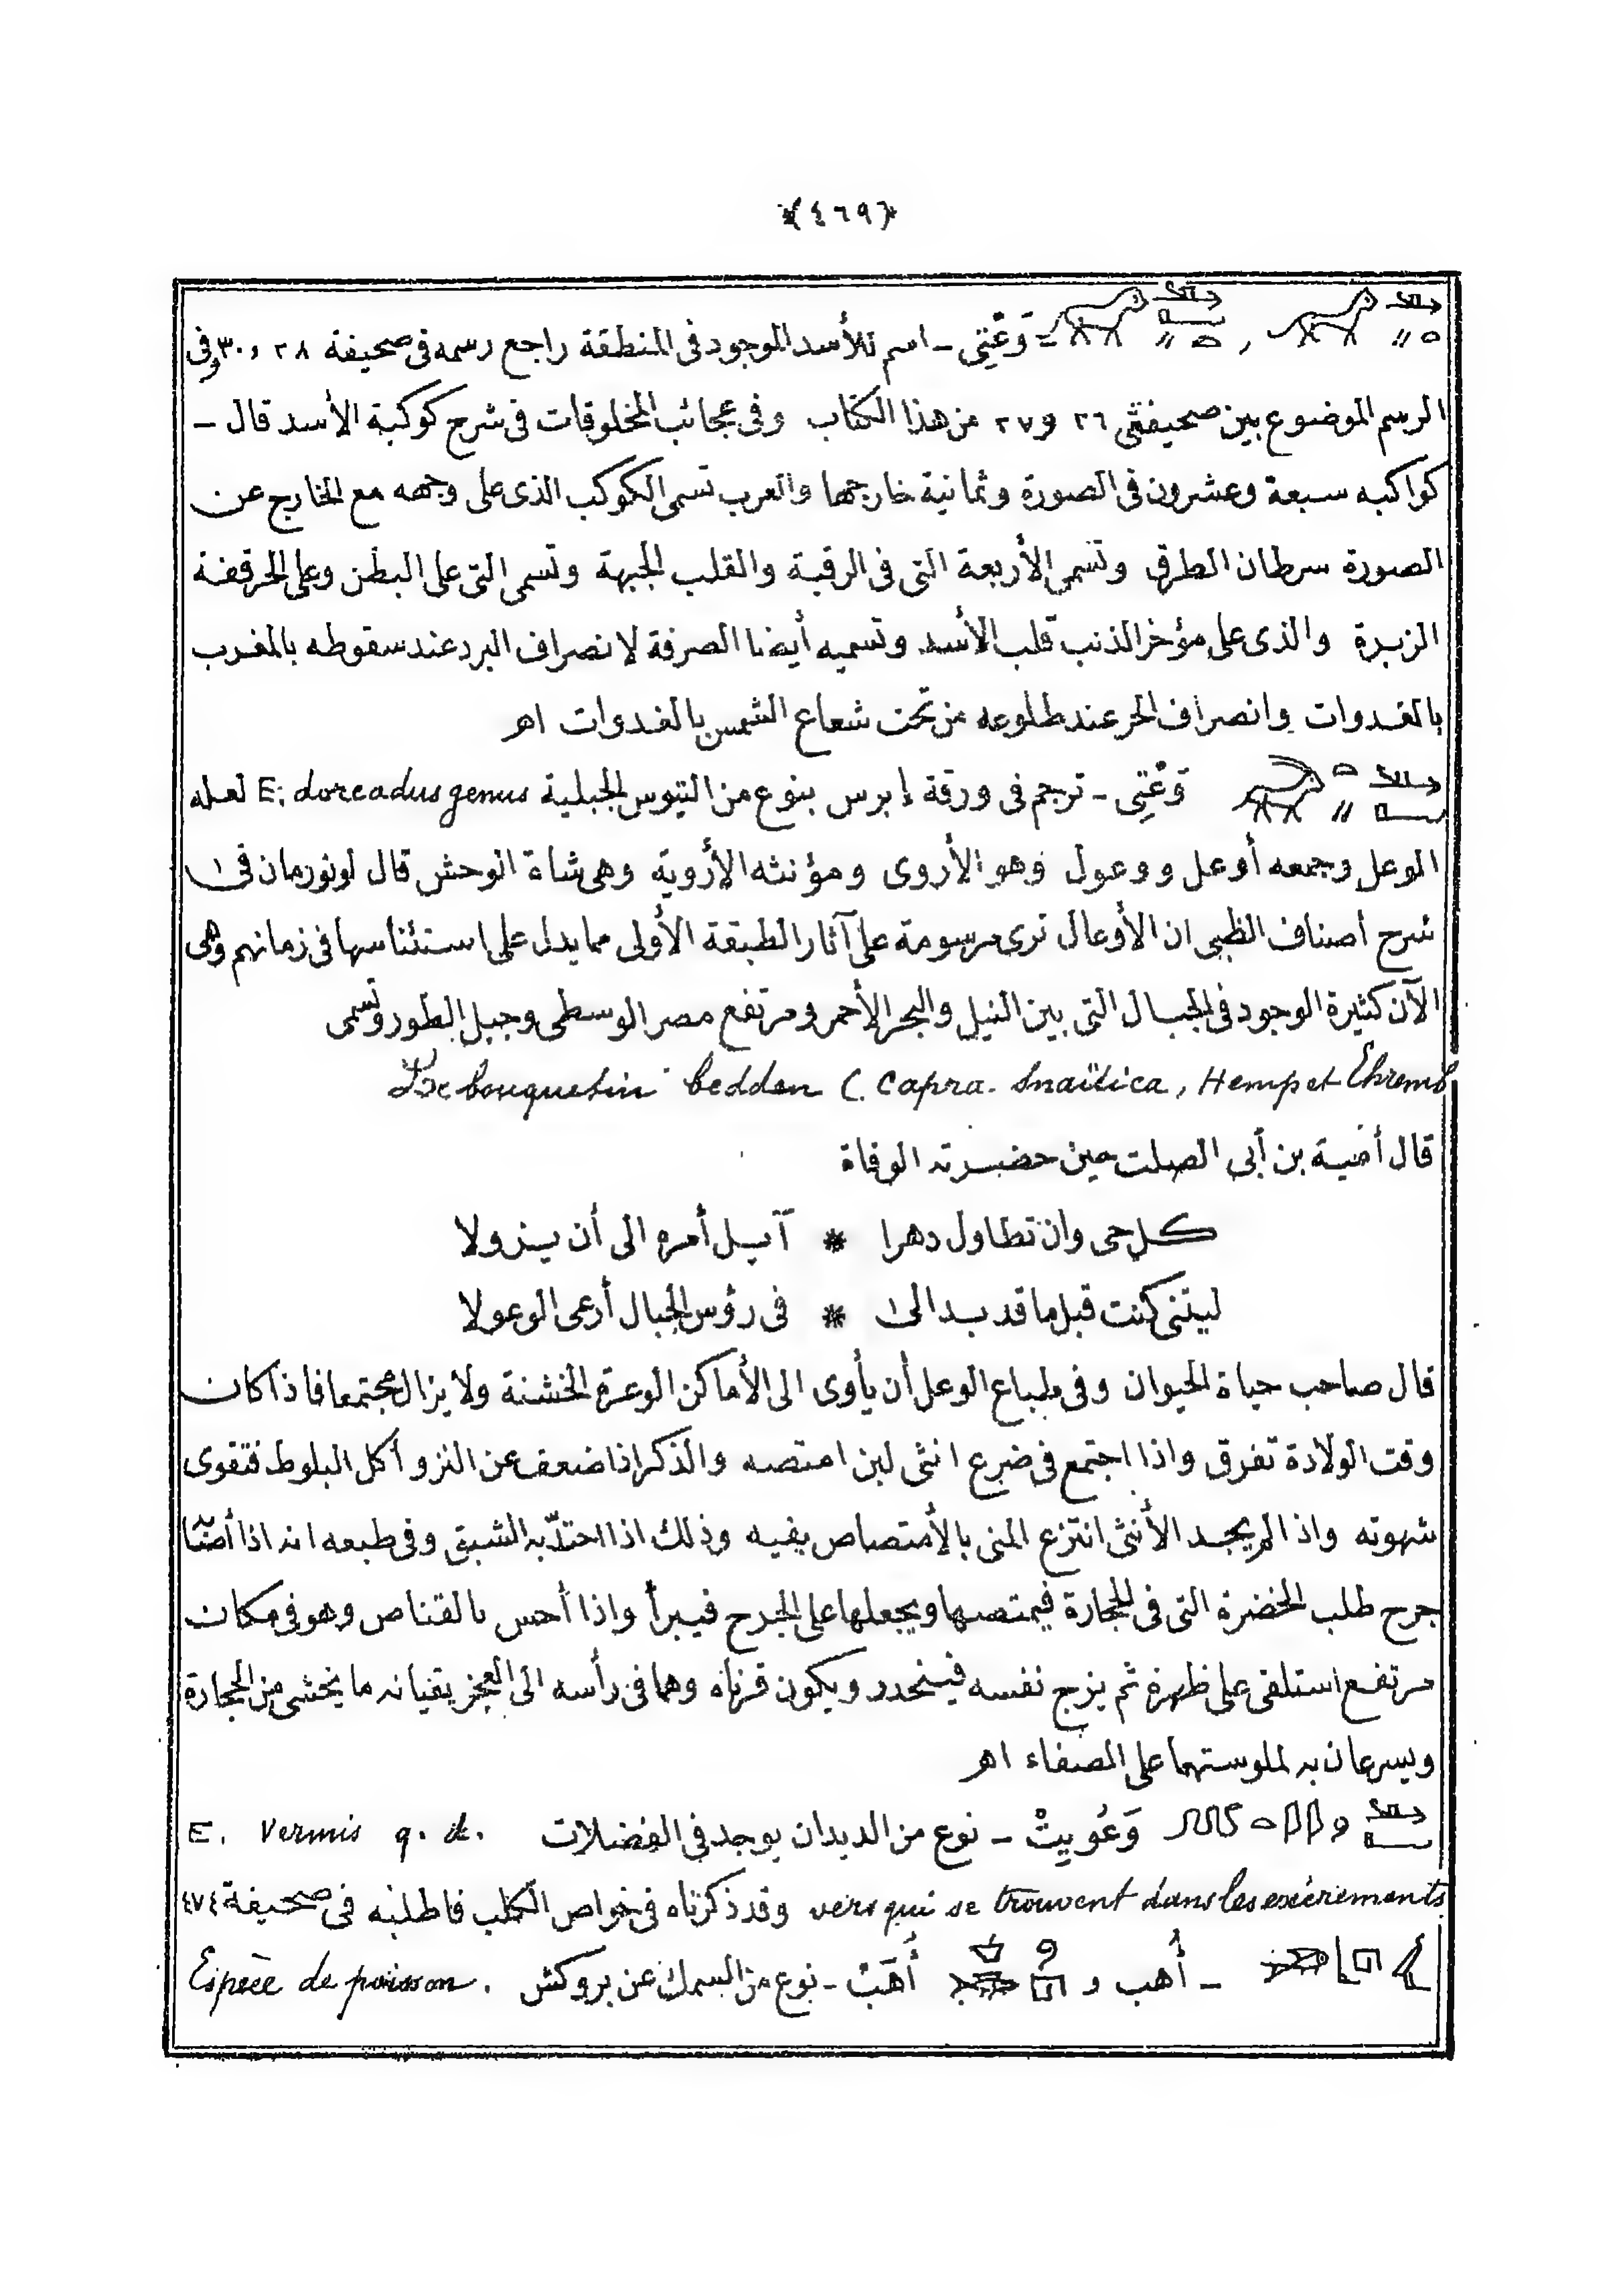 *(٤٦٩)*
وَعْتِى - اسم للأسد الموجود فى المنطقة راجع رسمه فى صحيفة ٢٨ و ٣٠ وفى
الرسم الموضوع بين صحيفتى ٢٦ و ٢٧ من هذا الكتاب وفى عجائب المخلوقات فى شرح كوكبة الأسد قال -
كواكبه سبعة وعشرون فى الصورة وثمانية خارجها والعرب تسمى الكوكب الذى على وجهه مع الخارج عن
الصورة سرطان الطرق وتسمى الأربعة التى فى الرقبة والقلب الجبهة وتسمى التى على البطن وعلى الحرقفة
الزبرة والذى على مؤخر الذنب قلب الأسد وتسميه أيضا الصرفة لانصراف البرد عند سقوطه بالمغرب
بالغدوات وانصراف الحر عند طلوعه من تحت شعاع الشمس بالغدوات اهـ
وَعْتِى - ترجم فى ورقة إبرس بنوع من التيوس الجبلية E: doreadus genus لعله
الوعل وجمعه أوعل ووعول وهو الأروى ومؤنثه الأروية وهى شاة الوحش قال لونورمان فى
شرح أصناف الظبى ان الأوعال ترى مرسومة على آثار الطبقة الأولى مما يدل على استئناسها فى زمانهم وهى
الآن كثيرة الوجود فى الجبال التى بين النيل والبحر الأحمر ومرتفع مصر الوسطى وجبل الطور وتسمى
Le bouquetin bedden (. Capra. Snaïtica, Hemp et Ehremb
قال أمية بن أبى الصلت حين حضرته الوفاة
كل حى وان تطاول دهرا * آيل أمره الى أن يزولا
ليتنى كنت قبل ما قد بدالى * فى رؤس الجبال أرعى الوعولا
قال صاحب حياة الحيوان وفى طباع الوعل أن يأوى الى الأماكن الوعرة الخشنة ولا يزال مجتمعا فاذا كان
وقت الولادة تفرق واذا اجتمع فى ضرع انثى لبن امتصه والذكر اذا ضعف عن النزو أكل البلوط فتقوى
شهوته واذا لم يجد الأنثى انتزع المنى بالأمتصاص بفيه وذلك اذا احتدّ به الشبق وفى طبعه انه اذا أصابه
جرح طلب الخضرة التى فى الحجارة فيمتصها ويجعلها على الجرح فيبرأ واذا أحس بالقناص وهو فى مكان
مرتفع استلقى على ظهره ثم يزج نفسه فينحدر ويكون قرناه وهما فى رأسه الى العجز يقيانه ما يخشى من الحجارة
ويسرعان به لملوستهما على الصفاء اهـ
وَعُوبِيتْ - نوع من الديدان يوجد فى الفضلات E. Vermis q. d.
vers qui se trouvent dans les excréments وقد ذكرناه فى خواص الكلب فاطلبه فى صحيفة ٤٧٤
- أُهب و أُهَبْ - نوع من السمك عن بروكش Espèce de poisson.